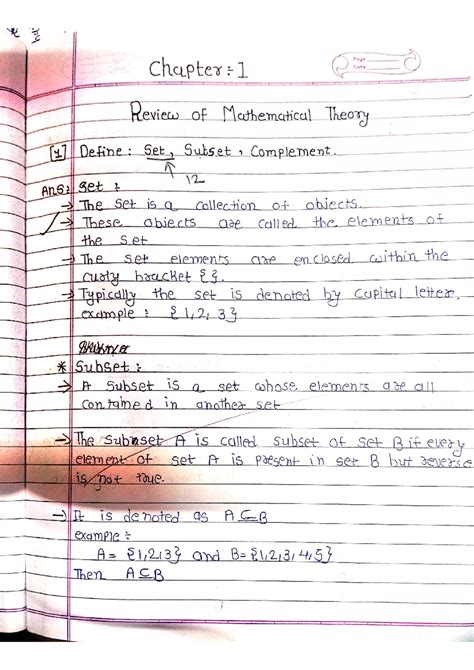 Chapter:-1
Page
Date
Review of Mathematical Theory
[1] Define: Set, Subset, Complement.
12
Ans: Set :
→ The Set is a collection of objects.
→ These objects are called the elements of
the set
→ The set elements are enclosed within the
curly bracket {}.
→ Typically the set is denoted by capital letter.
example : {1,2,3}
* Subset:
→ A subset is a set whose elements are all
contained in another set
→ The Subnset A is called subset of set B if every
element of set A is present in set B but reverse
is not true.
→ It is denoted as A⊆B
example :
A= {1,2,3} and B={1,2,3,4,5}
Then A⊆B